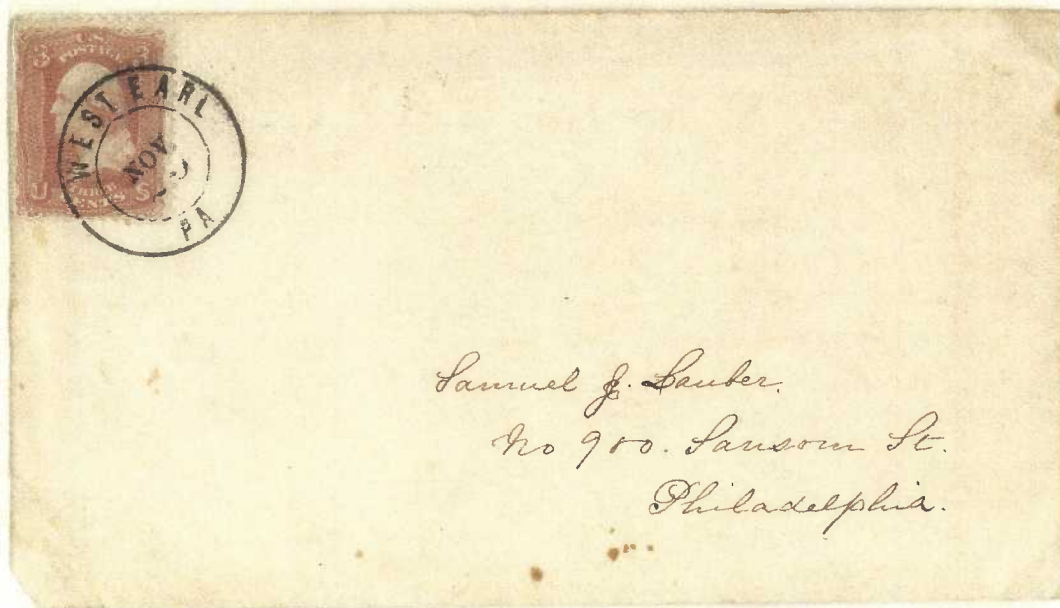 U.S.
POSTAGE
3 3
U S
THREE
CENTS
WEST EARL
NOV.
PA
Samuel J. Lauber.
No 900. Sansom St.
Philadelphia.